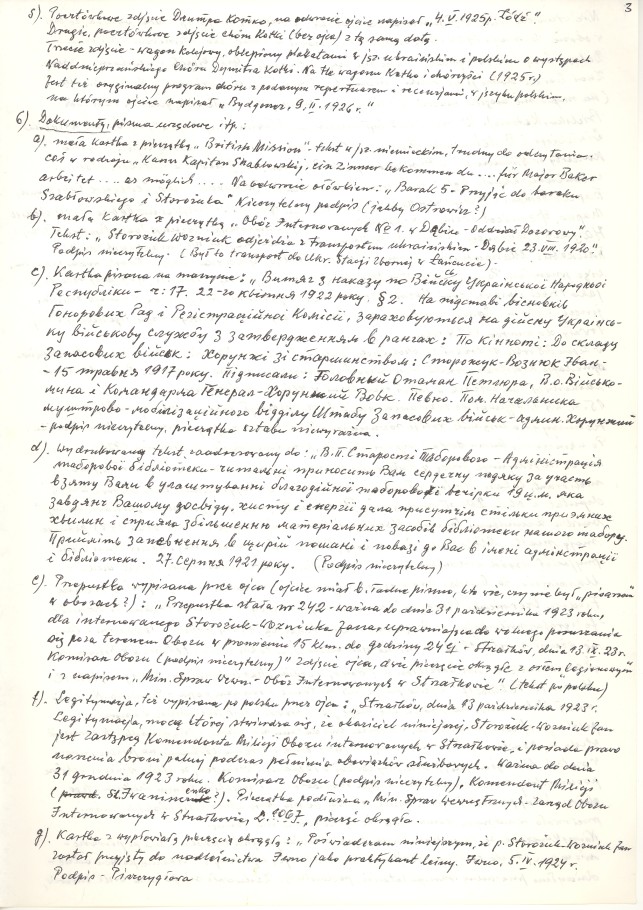 3
5). Pocztówkowe zdjęcie Dmytra Kotko, na odwrocie ojciec napisał „4.V.1925 р. Łódź."
Drugie, pocztówkowe zdjęcie chóru Kotki (bez ojca) z tą samą datą.
Trzecie zdjęcie - wagon kolejowy, oblepiony plakatami w jęz. ukraińskim i polskim o występach
Naddnieprzańskiego Chóru Dymitra Kotki. Na tle wagonu Kotko i chórzyści (1925 r.)
Jest też oryginalny program chóru z podanym repertuarem i recenzjami, w języku polskim,
na którym ojciec napisał „Bydgoszcz, 9.II.1926 r."
6). Dokumenty, pisma urzędowe itp.:
a). mała kartka z pieczątką „British Mission" - tekst w jęz. niemieckim, trudny do odczytania.
coś w rodzaju „Kann Kapitan Skablowskij, ein Zimmer bekommen du.... für Major Baker
arbeitet ... as möglich .... Na odwrocie ołówkiem: „Barak 5 - Przyjść do baraku
Szabłowskiego i Storożuka" Nieczytelny podpis (jakby Ostrowicz?)
b). mała kartka z pieczątką „Obóz Internowanych № 1. w Dąbiu - Oddział Dozorowy".
Tekst: „Storożuk Wozniuk odjeżdża z transportem ukraińskim - Dąbie 23.VIII. 1920".
Podpis nieczytelny. (Był to transport do Ukr. Stacji Zbornej w Łańcucie).
c). Kartka pisana na maszynie: „Витяг з наказу по Війську Української Народної
Республіки - ч: 17. 22-го квітня 1922 року. § 2. На підставі висновків
Гонорових Рад і Реєстраційної Комісії, зараховуються на дійсну Українсь-
ку військову службу з затвердженням в рангах: По Кінноті: До складу
Запасових військ: Хорунжі зі старшинством: Сторожук-Вознюк Іван-
- 15 травня 1917 року. Підписали: Головний Отаман Петлюра, В.о. Військо-
мина і Командарма Генерал-Хорунжий Вовк. Певно. Пом. Начальника
муштрово-мобілізаційного відділу Штабу Запасових військ - адмін. Хорунжий
- podpis nieczytelny, pieczątka sztabu niewyraźna.
d). Wydrukowany tekst zaadresowany do: „В.П. Старости Таборового - Адміністрація
таборової бібліотеки-читальні приносить Вам сердечну подяку за участь
взяту Вами в улаштуванні благодійної таборової вечірки 19 ц.м., яка
завдяки Вашому досвіду, хисту і енергії дала присутнім стільки приємних
хвилин і сприяла збільшенню матеріальних засобів бібліотеки нашого табору.
Прийміть запевнення в щирій пошані і повазі до Вас в імені адміністрації
і бібліотеки. 27. Серпня 1921 року. (Podpis nieczytelny)
e). Przepustka wypisana przez ojca (ojciec miał b. ładne pismo, kto wie, czy nie był „pisarzem"
w obozach?): „Przepustka stała nr 242 - ważna do dnia 31 października 1923 roku,
dla internowanego Storożuk-Wozniuka Jana, uprawniająca do wolnego poruszania
się poza terenem Obozu w promieniu 15 klm. do godziny 24ej - Strzałków, dnia 13.IX.23 r.
Komisarz Obozu (podpis nieczytelny)" zdjęcie ojca, dwie pieczęcie okrągłe z orłem legionowym
i z napisem „Min. Spraw Wewn. - Obóz Internowanych w Strzałkowie". (tekst po polsku)
f). Legitymacja, też wypisana po polsku przez ojca: „Strzałków, dnia 13 października 1923 r.
Legitymacja, mocą której stwierdza się, że okaziciel niniejszej, Storożuk-Wozniuk Jan
jest Zastępcą Komendanta Milicji Obozu internowanych w Strzałkowie, i posiada prawo
noszenia broni palnej podczas pełnienia obowiązków służbowych. Ważna do dnia
31 grudnia 1923 roku. Komisarz Obozu (podpis nieczytelny). Komendant Milicji
( St. Iwaninenko?). Pieczątka podłużna „Min. Spraw Wewnętrznych - Zarząd Obozu
Internowanych w Strzałkowie, L. 1067, pieczęć okrągła.
g). Kartka z wypłowiałą pieczęcią okrągłą: „Poświadczam niniejszym, że p. Storożuk-Wozniuk Jan
został przyjęty do nadleśnictwa Jerno jako praktykant leśny. Jerno, 5.IV.1924 r.
Podpis - Pieczęgłowa